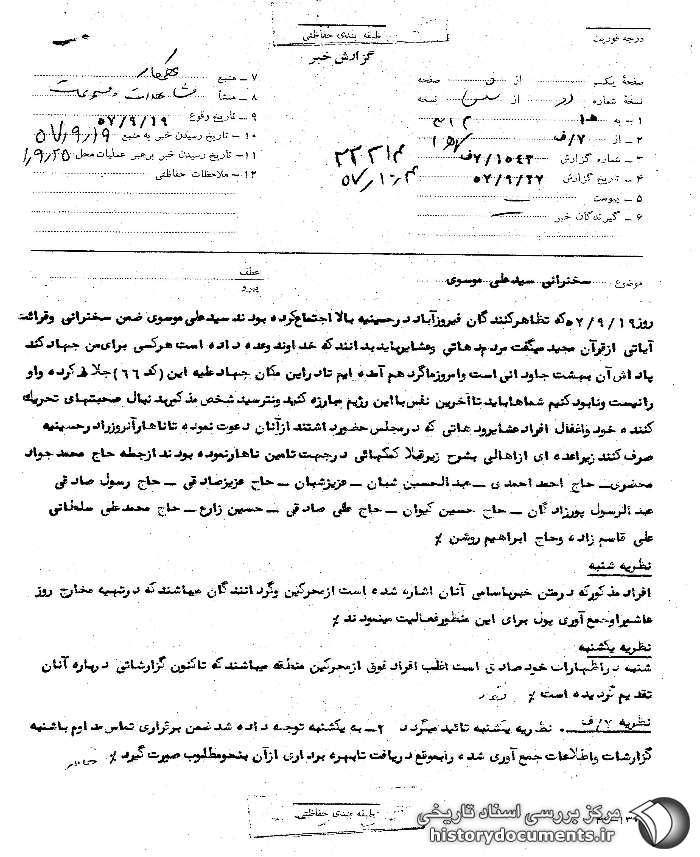 طبقه بندی حفاظتی
درجه فوریت
گزارش خبر
صفحه یک از صفحه
نسخه شماره از نسخه
۱ – به
۲ – از ۷/ف
۳ – شماره گزارش ۷/۱۰۵۴۳ف
۴ – تاریخ گزارش ۵۷/۹/۲۷
۵ – پیوست
۶ – گیرندگان خبر
۷ – منبع
۸ – منشأ
۹ – تاریخ وقوع ۵۷/۹/۱۹
۱۰ – تاریخ رسیدن خبر به منبع ۵۷/۹/۱۹
۱۱ – تاریخ رسیدن خبر برهبر عملیات محل
۱۲ – ملاحظات حفاظتی
موضوع سخنرانی سیدعلی موسوی
عطف
پیرو
روز ۵۷/۹/۱۹ که تظاهرکنندگان فیروزآباد درحسینیه بالا اجتماع کرده بودند سیدعلی موسوی ضمن سخنرانی وقرائت
آیاتی ازقرآن مجید میگفت مردم دهاتی وعشایرباید بدانند که خداوند وعده داده است هرکسی برای من جهاد کند
پاداش آن بهشت جاودانی است وامروزماگرد هم آمده ایم تادراین مکان جهاد علیه این (کد ۶۶) جلاد کرده واو
رانیست ونابود کنیم شماهاباید تاآخرین نفس بااین رژیم مبارزه کنید ونترسید شخص مذکوربد نبال صحبتهای تحریک
کننده خود واغفال افراد عشایرودهاتی که درمجلس حضورداشتند ازآنان دعوت نموده تاناهارآنروزراد رحسینیه
صرف کنند زیراعده ای ازاهالی بشرح زیرقبلا کمکهائی درجهت تامین ناهارنموده بودند ازجمله حاج محمد جواد
محضری – حاج احمد احمدی – عبدالحسین شبان – عزیزشبان – حاج عزیزصادقی – حاج رسول صادقی
عبدالرسول پورزادگان – حاج حسین کیوان – حاج علی صادقی – حسین زارع – حاج محمدعلی سلطانی
علی قاسم زاده وحاج ابراهیم روشن ٪
نظریه شنبه
افراد مذکورکه درمتن خبرباسامی آنان اشاره شده است ازمحرکین وگردانندگان میباشند که درتهیه مخارج روز
عاشوراوجمع آوری پول برای این منظورفعالیت مینمودند ٪
نظریه یکشنبه
شنبه دراظهارات خود صادق است اغلب افراد فوق ازمحرکین منطقه میباشند که تاکنون گزارشاتی درباره آنان
تقدیم گردیده است ٪
نظریه ۷/ف . نظریه یکشنبه تائید میگردد ۲ – به یکشنبه توجه داده شد ضمن برقراری تماس مداوم باشنبه
گزارشات واطلاعات جمع آوری شده رابموقع دریافت تابهره برداری ازآن بنحومطلوب صورت گیرد ٪
طبقه بندی حفاظتی
مرکز بررسی اسناد تاریخی
historydocuments.ir